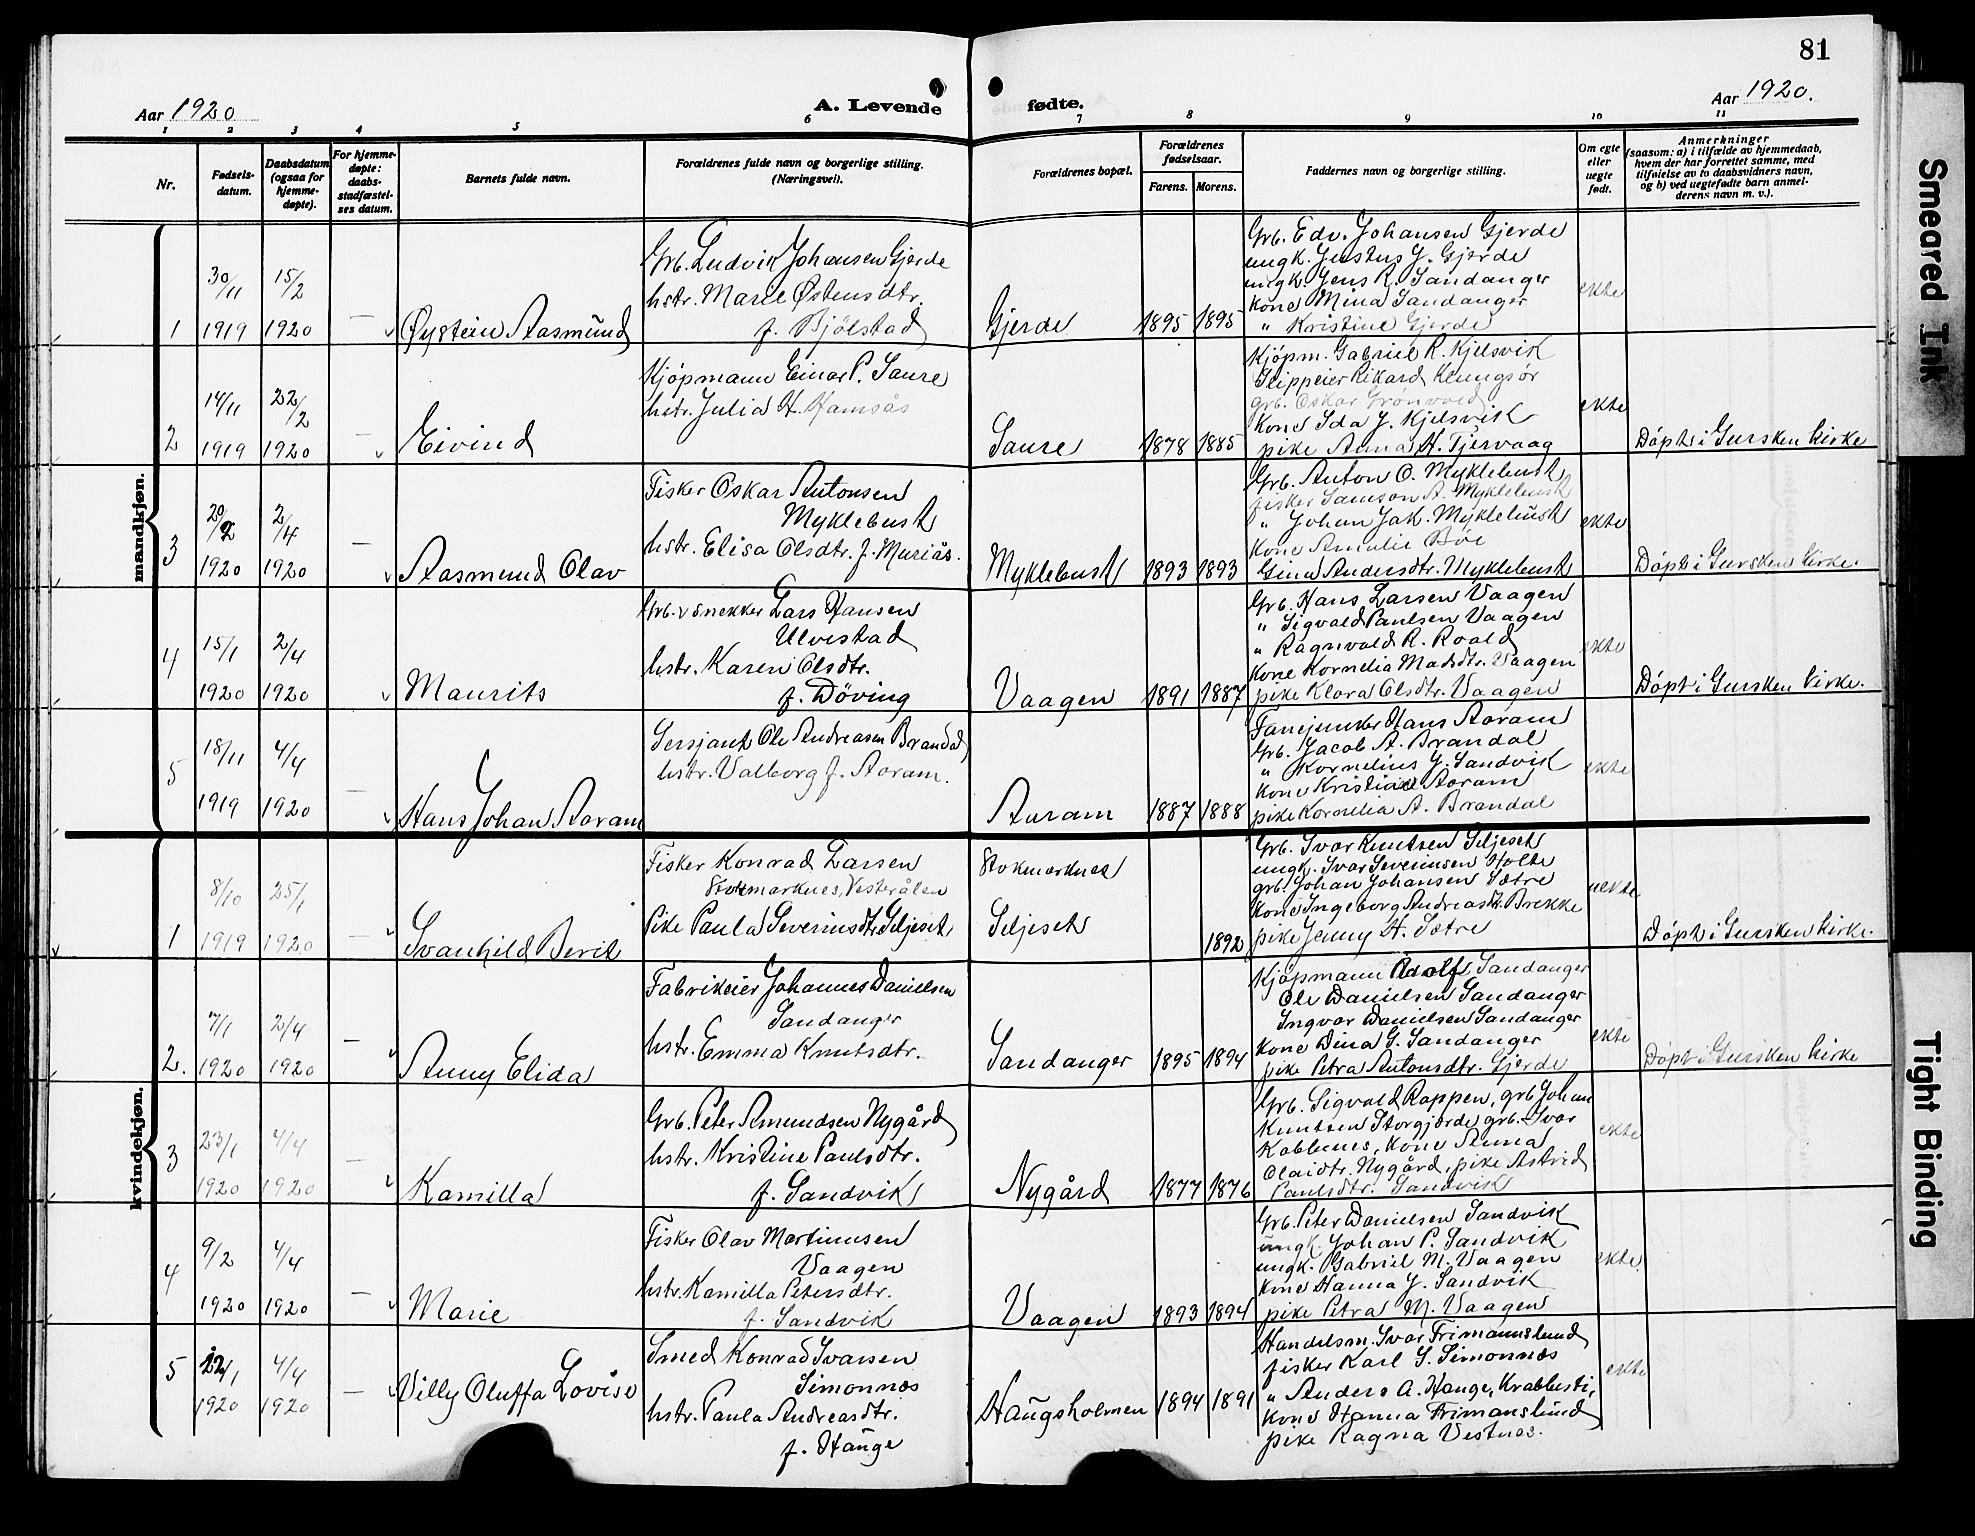 81
Aar 1920
A. Levende
fødte.
Aar 1920.
1 2 3 4 5 6 7 8 9 10 11
Nr.
Fødsels-
datum.
Daabsdatum
(ogsaa for
hjemme-
døpte).
For hjemme-
døpte:
daabs-
stadfæstel-
ses datum.
Barnets fulde navn.
Forældrenes fulde navn og borgerlige stilling.
(Næringsvei).
Forældrenes bopæl.
Forældrenes
fødselsaar.
Farens. Morens.
Faddernes navn og borgerlige stilling.
Om egte
eller
uegte
født.
Anmerkninger
(saasom: a) i tilfælde av hjemmedaab,
hvem der har forrettet samme, med
tilføielse av to daabsvidners navn,
og b) ved uegtefødte barn anmel-
derens navn m. v.).
mandkjøn.
1
30/11
1919
15/2
1920
—
Øystein Aasmund
Grb. Ludvik Johansen Gjerde
hstr. Marie Østensdtr.
f. Bjølstad
Gjerde
1895 1895
Grb. Edv. Johansen Gjerde
ungk. Justus J. Gjerde
ungk. Jens R. Sandanger
kone Mina Sandanger
" Kristine Gjerde
ekte
2
14/11
1919
22/2
1920
—
Eivind
Kjöpmann Einar P. Saure
hstr. Julia H. Hamsås
Saure
1878 1885
Kjöpm. Gabriel R. Kjelsvik
Slippeier Rikard Klungsör
grb. Oskar Grönvold
Kone Ida J. Kjelsvik
pike Anna H. Tjervaag
ekte
Döpt i Gursken kirke
3
20/2
1920
2/4
1920
—
Aasmund Olav
Fisker Oskar Antonsen
Myklebust
hstr. Elisa Olsdtr. f. Muriås.
Myklebust
1893 1893
Grb. Anton O. Myklebust
fisker Samson A. Myklebust
" Johan Jak. Myklebust
Kone Amalie Böe
Gina Andersdtr. Myklebust
ekte
Döpt i Gursken kirke.
4
15/1
1920
2/4
1920
Maurits
Grb. v snekker Lars Hansen
Ulvestad
hstr. Karen Olsdtr.
f. Döving
Vaagen
1891 1887
Grb. Hans Larsen Vaagen
" Sigvald Paulsen Vaagen
" Ragnvald R. Roald
Kone Kornelia Madsdtr. Vaagen
pike Klara Olsdtr. Vaagen
ekte
Döpt i Gursken kirke.
5
18/11
1919
4/4
1920
—
Hans Johan Aaram
Sersjant Ole Andreasen Brandal
hstr. Valborg f. Aaram.
Auram
1887 1888
Fanejunker Hans Aaram
Grb. Jacob A. Brandal
" Kornelius J. Sandvik
kone Kristine Aaram
pike Kornelia A. Brandal
ekte
kvindekjøn.
1
8/10
1919
25/1
1920
—
Svanhild Berit
Fisker Konrad Larsen
Stokmarknes, Vesterålen
Pike Paula Severinsdtr. Seljeset
Stokmarknes
Seljeset
1892
Grb. Ivar Knutsen Seljeset
ungk. Ivar Severinsen Holte
grb. Johan Johansen Sætre
Kone Ingeborg Andreasdt. Brekke
pike Jenny H. Sætre
uekte
Döpt i Gursken kirke.
2.
7/1
1920
2/4
1920
—
Anny Elida
Fabrikeier Johannes Danielsen
Sandanger
hstr. Emma Knutsdtr.
Sandanger
1895 1894
Kjöpmann Adolf Sandanger
Ole Danielsen Sandanger
Ingvar Danielsen Sandanger
Kone Dina G. Sandanger
pike Petra Antonsdtr. Gjerde
ekte
Döpt i Gursken kirke
3
23/1
1920
4/4
1920
—
Kamilla
Grb. Peter Amundsen Nygård
hstr. Kristine Paulsdtr.
f. Sandvik
Nygård
1877 1876
Grb. Sigvald Rappen, grb Johan
Knutsen Storgjerde grb. Ivar
Kobbenes, kone Anna
Olaidtr. Nygård, pike Astrid
Paulsdtr. Sandvik
ekte
4
9/2
1920
4/4
1920
—
Marie
Fisker Olav Martinusen
Vaagen
hstr. Kamilla Petersdtr.
f. Sandvik
Vaagen
1893 1894
Grb. Peter Danielsen Sandvik
ungk. Johan P. Sandvik
ungk. Gabriel M. Vaagen
kone Hanna J. Sandvik
pike Petra M. Vaagen
ekte
5
12/1
1920
4/4
1920
—
Villy Oluffa Lovise
Smed Konrad Ivarsen
Simonnæs
hstr. Paula Andreasdtr.
f. Hauge
Haugsholmen
1894 1891
Handelsm. Ivar Frimannslund
fisker Karl S. Simonnæs
" Anders A. Hauge, Krabbesti,
kone Hanna Frimanslund
pike Ragna Vestnes.
ekte
Smeared Ink
Tight Binding